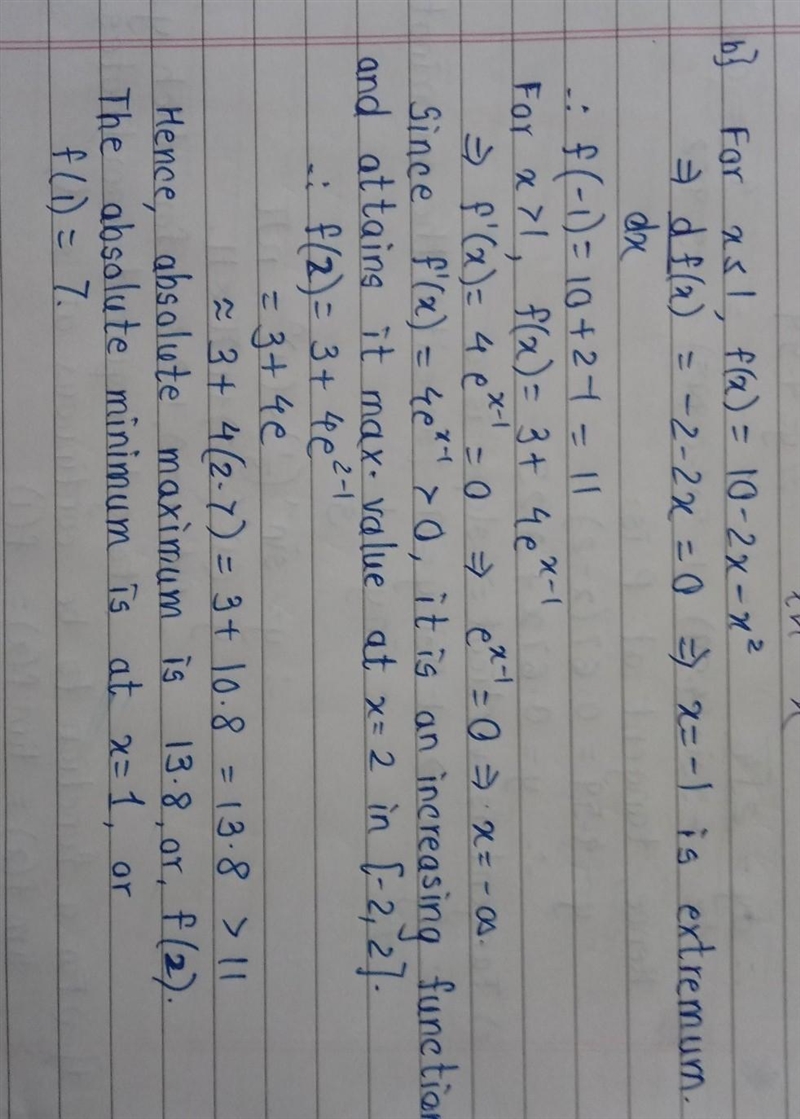 b} For x ≤ 1, f(x) = 10 - 2x - x²
⇒ d f(x) = -2 - 2x = 0 ⇒ x = -1 is extremum.
dx
∴ f(-1) = 10 + 2 - 1 = 11
For x > 1, f(x) = 3 + 4e^{x-1}
⇒ f'(x) = 4 e^{x-1} = 0 ⇒ e^{x-1} = 0 ⇒ x = -∞.
Since f'(x) = 4e^{x-1} > 0, it is an increasing function
and attains it max. value at x = 2 in [-2, 2].
∴ f(2) = 3 + 4e^{2-1}
= 3 + 4e
≈ 3 + 4(2.7) = 3 + 10.8 = 13.8 > 11
Hence, absolute maximum is 13.8, or, f(2).
The absolute minimum is at x = 1, or
f(1) = 7.